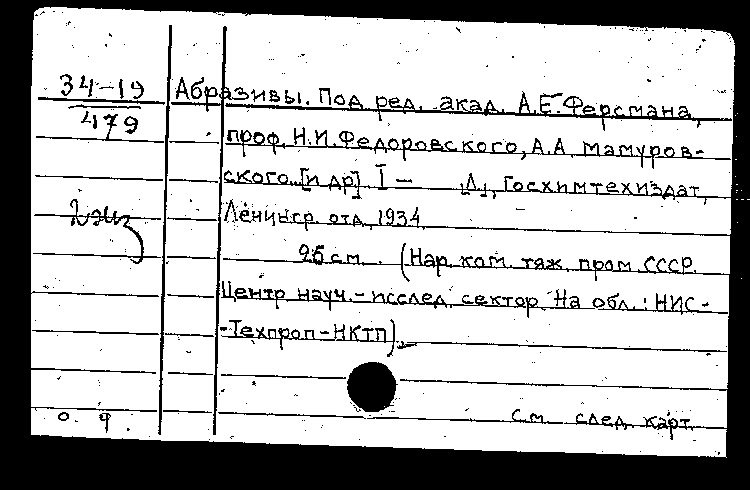 34-19 Абразивы. Под ред. акад. А.Е.Ферсмана,
479 проф. Н.И.Федоровского, А.А. Мамуров-
ского [и др] I — Л., Госхимтехиздат,
2 экз Ленингр. отд, 1934
26 см. (Нар. ком. тяж. пром. СССР.
Центр науч.-исслед. сектор. На обл.: НИС-
-Техпроп-НКТП).
о. ч. см. след. карт.